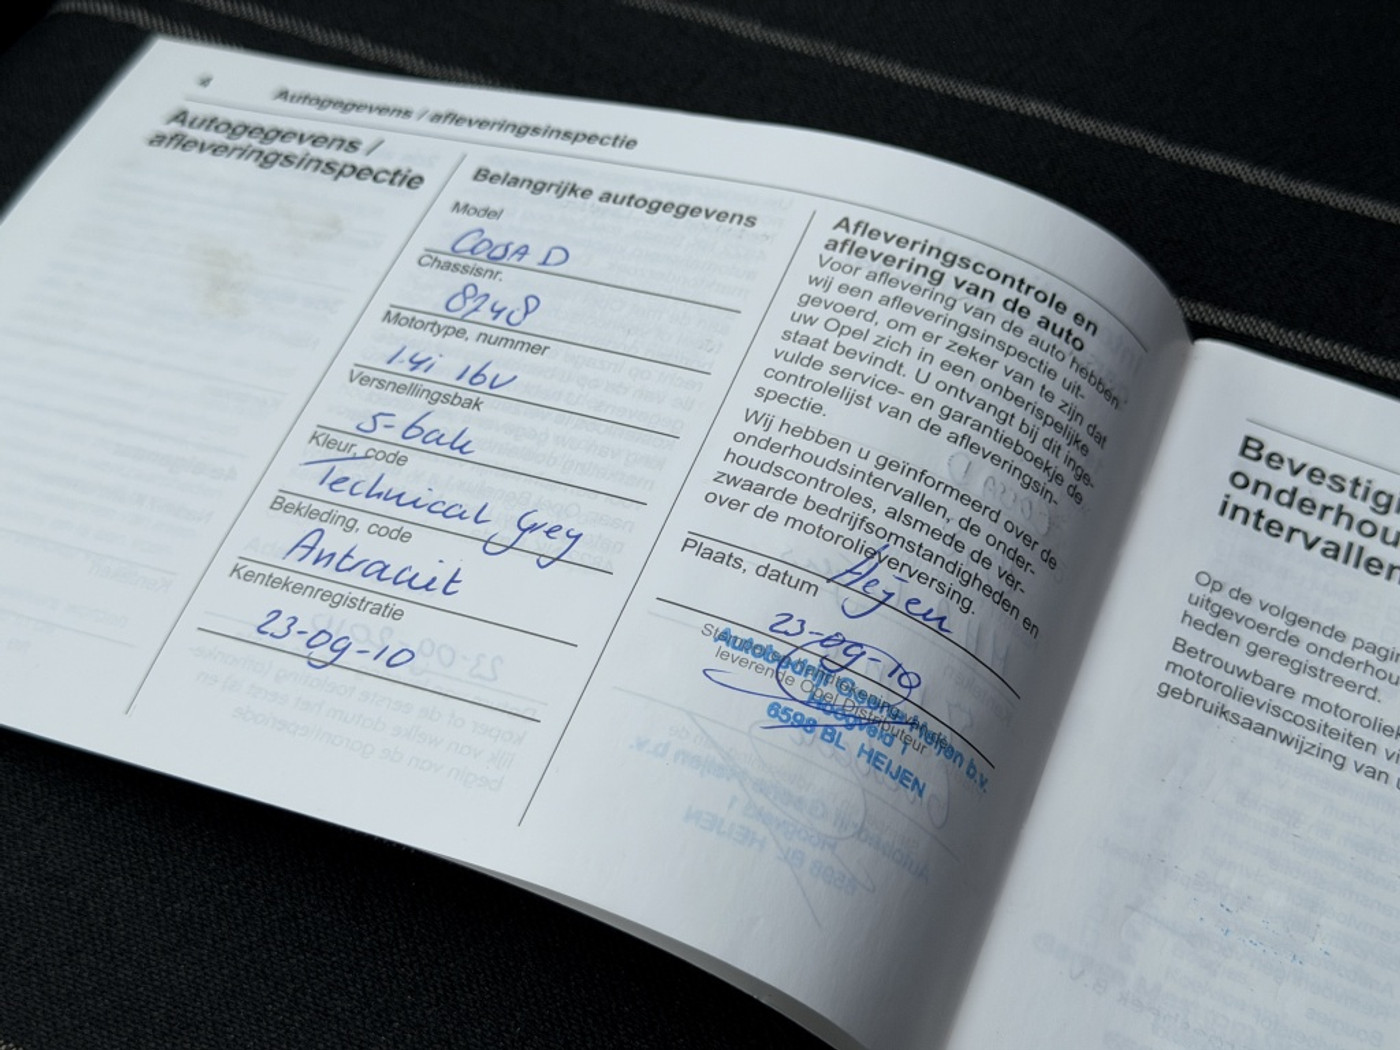 4
Autogegevens / afleveringsinspectie
Autogegevens /
afleveringsinspectie
Belangrijke autogegevens
Model
Corsa D
Chassisnr.
8248
Motortype, nummer
1.4i 16v
Versnellingsbak
5-bak
Kleur, code
Technical Grey
Bekleding, code
Antraciet
Kentekenregistratie
23-09-10
Afleveringscontrole en
aflevering van de auto
Voor aflevering van de auto hebben
wij een afleveringsinspectie uit-
gevoerd, om er zeker van te zijn dat
uw Opel zich in een onberispelijke
staat bevindt. U ontvangt bij dit inge-
vulde service- en garantieboekje de
controlelijst van de afleveringsin-
spectie.
Wij hebben u geïnformeerd over de
onderhoudsintervallen, de onder-
houdscontroles, alsmede de ver-
zwaarde bedrijfsomstandigheden en
over de motorolieverversing.
Heijen
Plaats, datum
23-09-10
leverende Opel Distributeur
Autobedrijf Gerrits Heijen b.v.
Hoogveld 1
6598 BL HEIJEN
Bevestig
onderhou
intervallen
Op de volgende pagin
uitgevoerde onderhou
heden geregistreerd.
Betrouwbare motoroliek
motorolieviscositeiten vi
gebruiksaanwijzing van